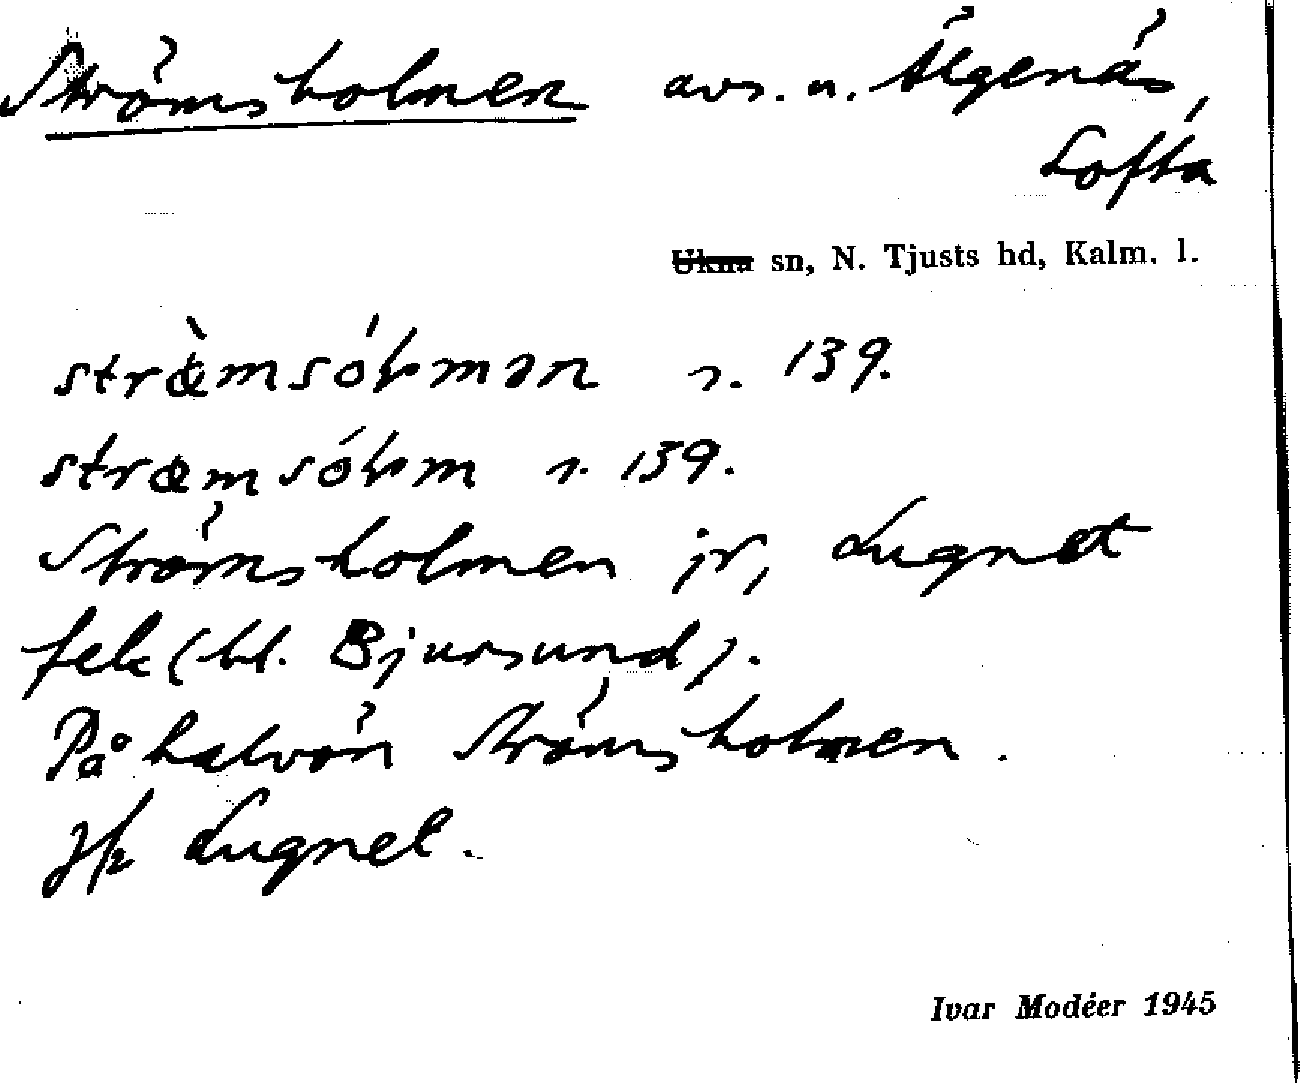 Strömsholmen avs. u. Älgenäs,
Lofta
Ukna sn, N. Tjusts hd, Kalm. l.
139.
139.
Strömsholmen jr, Lugnet
fek (bl. Bjursund).
På halvön Strömsholmen.
Jfr Lugnet.
Ivar Modéer 1945